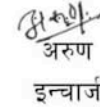 अरुण
इन्चार्ज